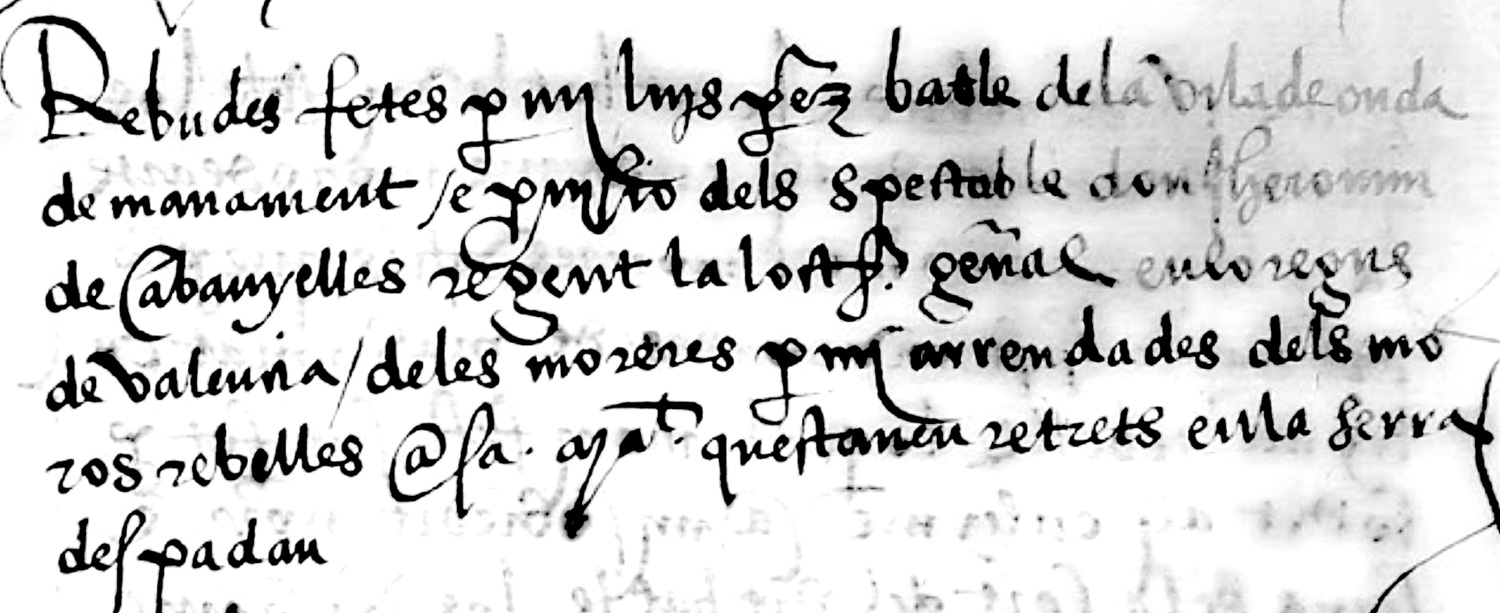 Rebudes fetes ꝑ mi luys ꝑez batle de la vila de onda
de manament / e ꝑmisio dels spectable don Iheronim
de Cabanyelles regent la loctᵃ. gen̄al en lo regne
de valencia / deles moreres ꝑ mi arrendades dels mo
ros rebelles @ sa. maᵗ. questauen retrets en la serra
despadan